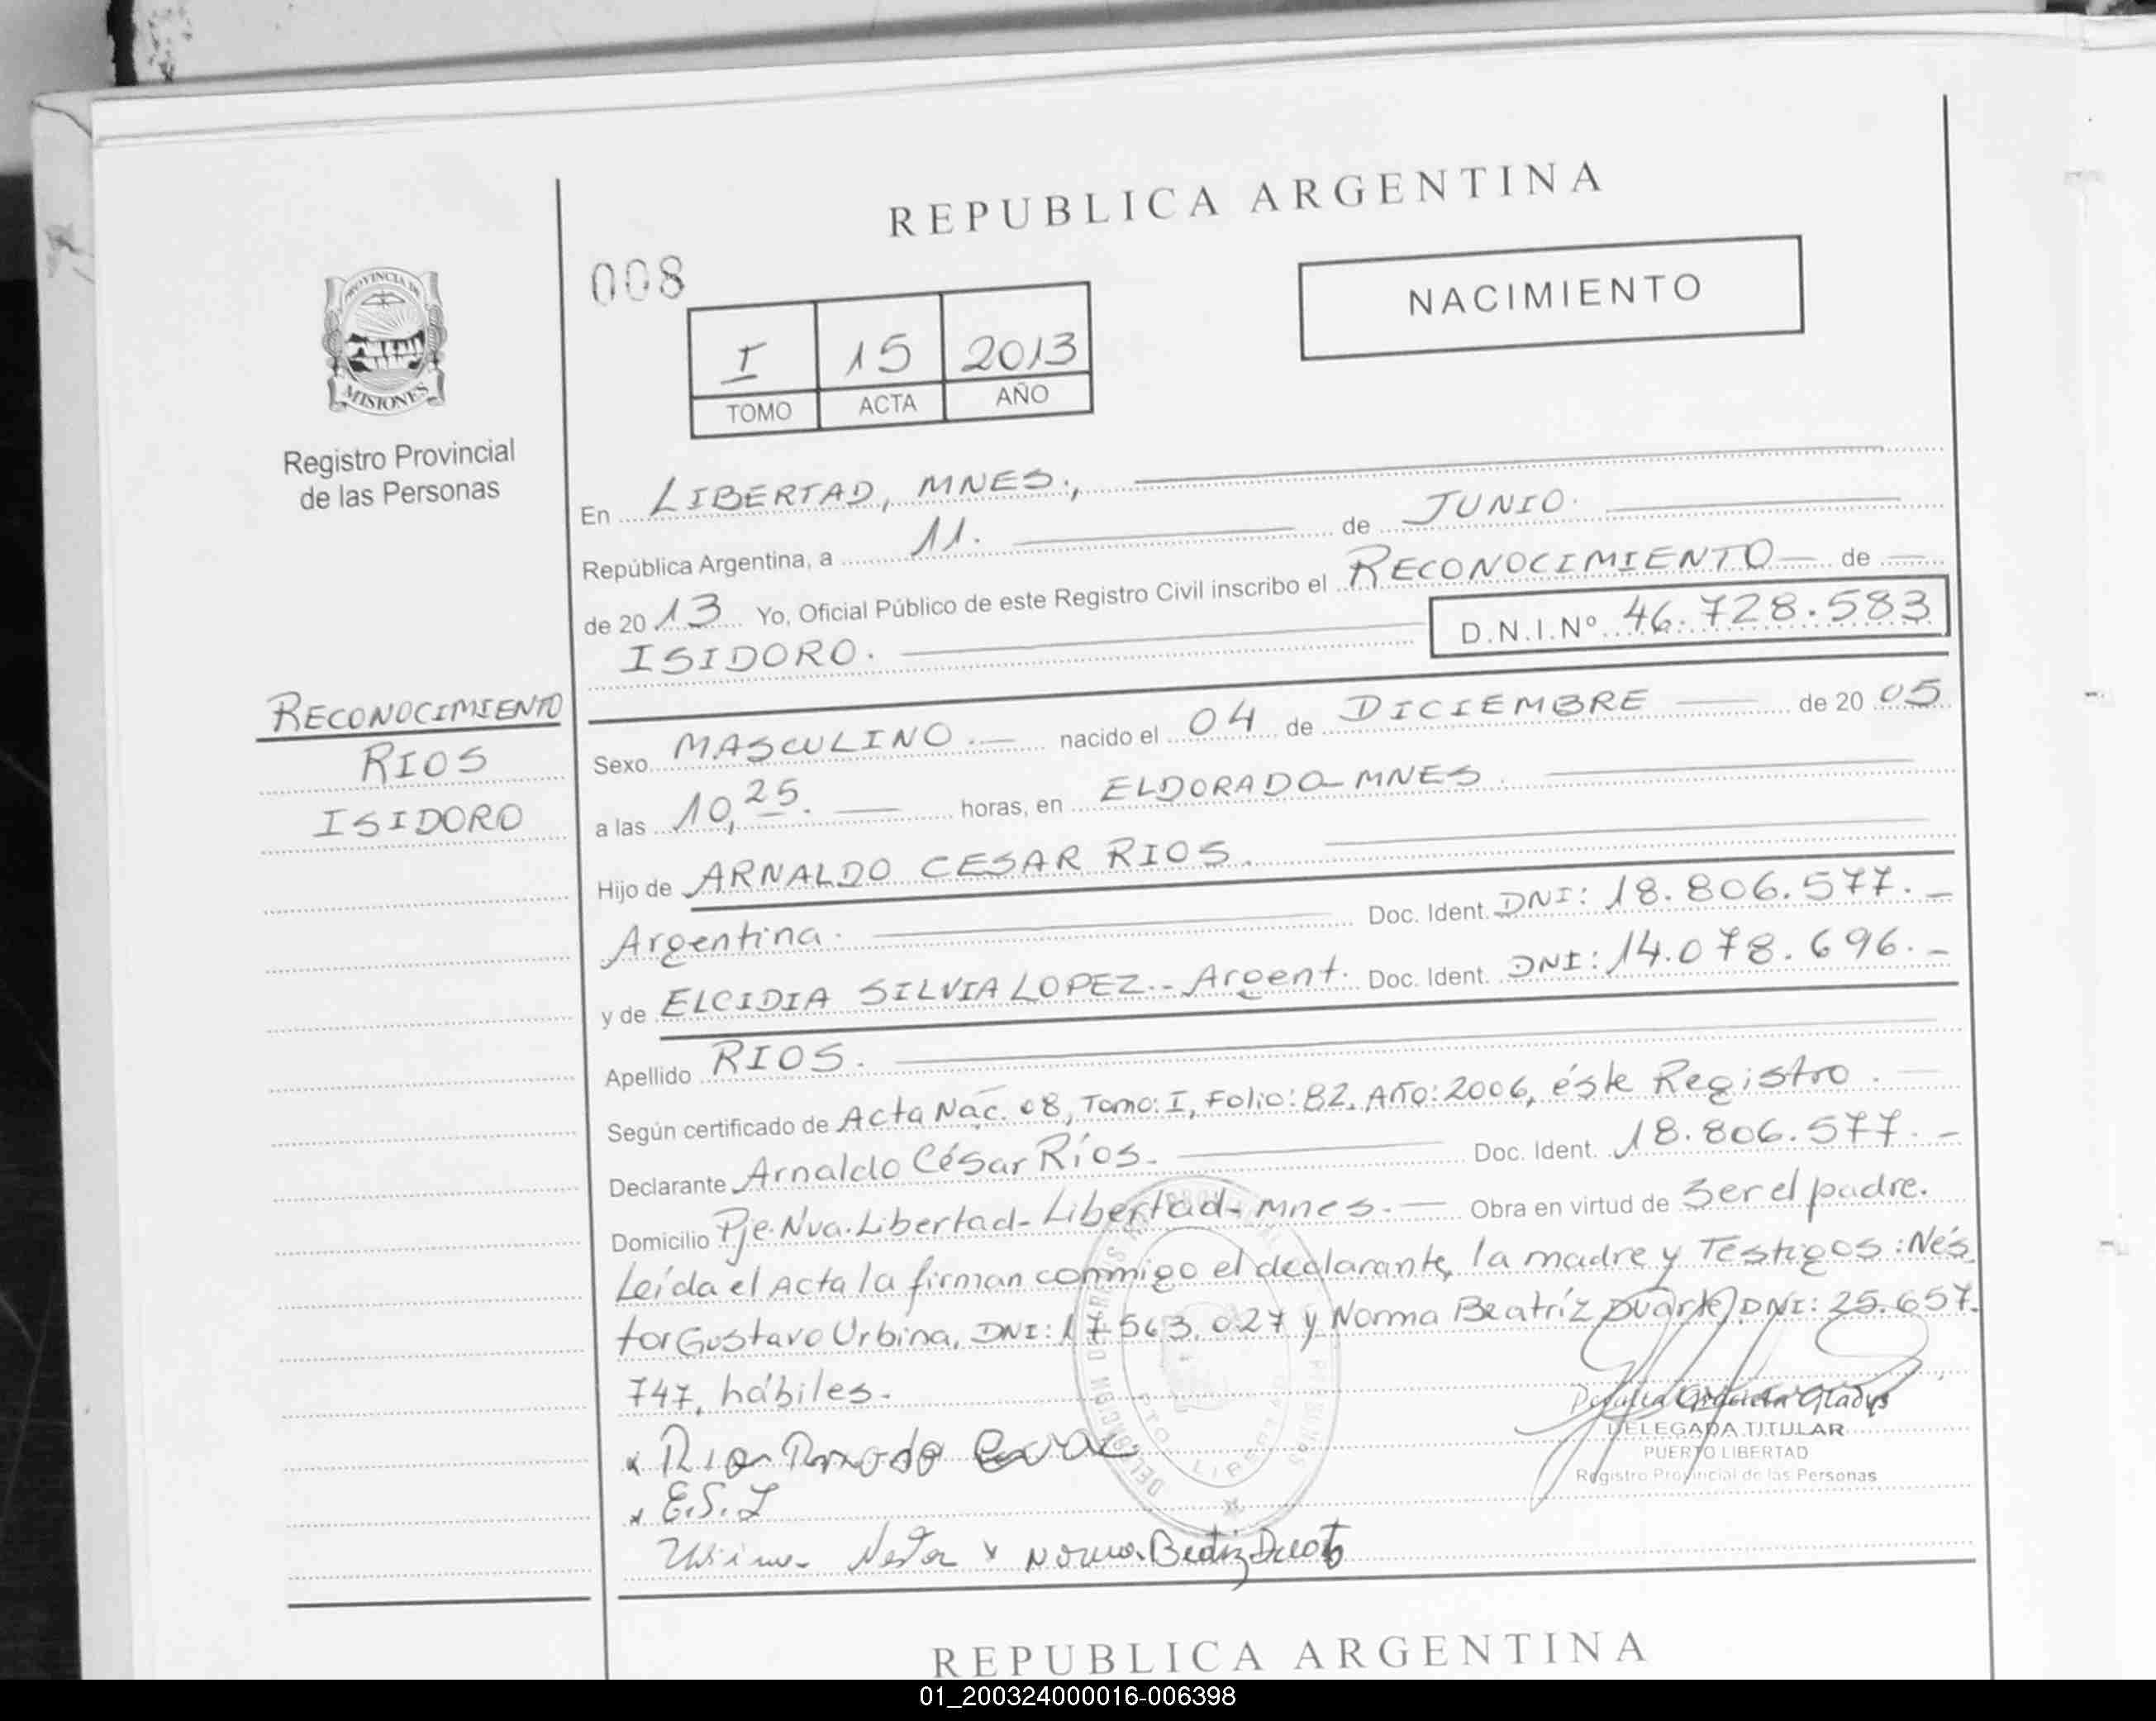 REPUBLICA ARGENTINA
008
NACIMIENTO
I 15 2013
TOMO ACTA AÑO
PROVINCIA DE
MISIONES
Registro Provincial
de las Personas
En LIBERTAD, MNES.,
República Argentina, a 11. de JUNIO.
de 2013 Yo, Oficial Público de este Registro Civil inscribo el RECONOCIMIENTO de
ISIDORO. D.N.I.Nº 46.728.583
RECONOCIMIENTO
RIOS
ISIDORO
Sexo MASCULINO.- nacido el 04 de DICIEMBRE de 2005
a las 10,25. horas, en ELDORADO-MNES.
Hijo de ARNALDO CESAR RIOS.
Argentina. Doc. Ident. DNI: 18.806.577.-
y de ELCIDIA SILVIA LOPEZ.- Argent. Doc. Ident. DNI: 14.078.696.-
Apellido RIOS.
Según certificado de Acta Nac. 08, Tomo: I, Folio: 82, Año: 2006, éste Registro.
Declarante Arnaldo César Ríos.- Doc. Ident. 18.806.577.-
Domicilio Pje. Nva. Libertad- Libertad- Mnes.- Obra en virtud de Ser el padre.
Leída el Acta la firman conmigo el declarante, la madre y Testigos: Nés
tor Gustavo Urbina, DNI: 17.563.027 y Norma Beatríz Duarte, DNI: 25.657.
747, hábiles.
E.S.L
DELEGADA TITULAR
PUERTO LIBERTAD
Registro Provincial de las Personas
REPUBLICA ARGENTINA
01_200324000016-006398